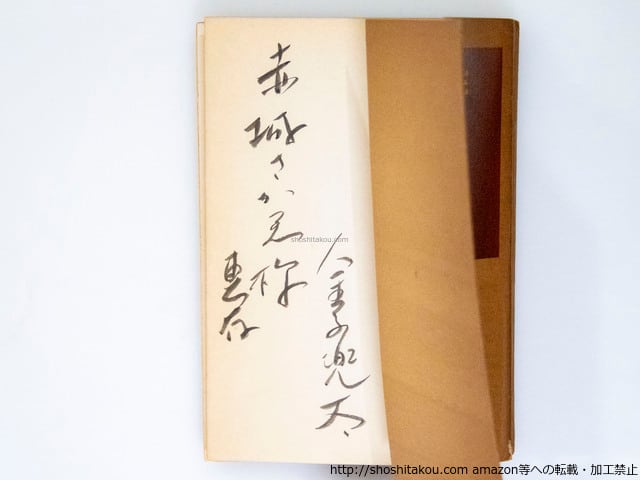 金子兜太
赤城さかえ様
恵存
shoshitakou.com
http://shoshitakou.com amazon等への転載・加工禁止